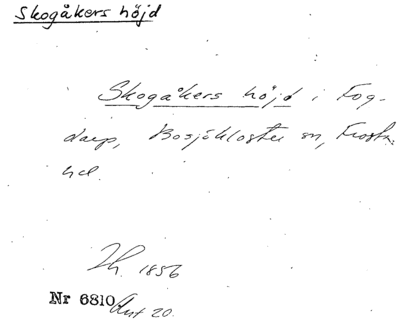 Skogåkers höjd
Skogåkers höjd i Fog-
darp, Bosjökloster sn, Frosta
hd.
1856
Nr 6810 Ant 20.